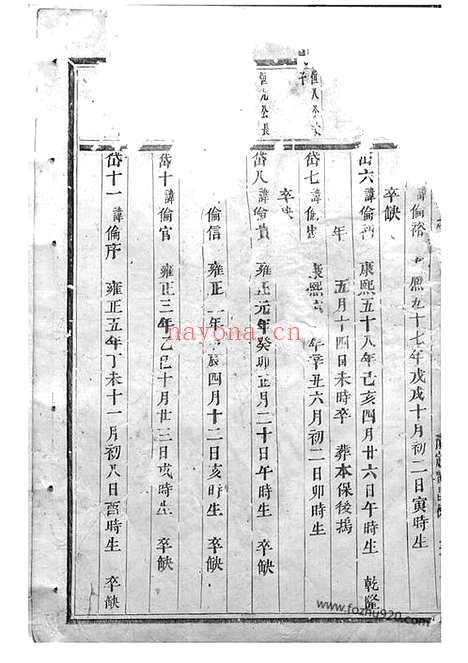 諱倫 熙五十七年戊戌十月初二日寅時生
卒缺
六 諱倫 康熙五十八年己亥四月廿六日午時生 乾隆
年 五月十四日未時卒 葬本保後塢
岱七 諱倫 康熙 年辛丑六月初二日卯時生
卒缺
岱八 諱倫貴 雍正元年癸卯正月二十日午時生 卒缺
倫信 雍正二年 辰四月十二日亥時生 卒缺
岱十 諱倫官 雍正三年乙巳十月廿三日戌時生 卒缺
岱十一 諱倫序 雍正五年丁未十一月初八日酉時生 卒缺
nayona.cn
www.fozhu920.com